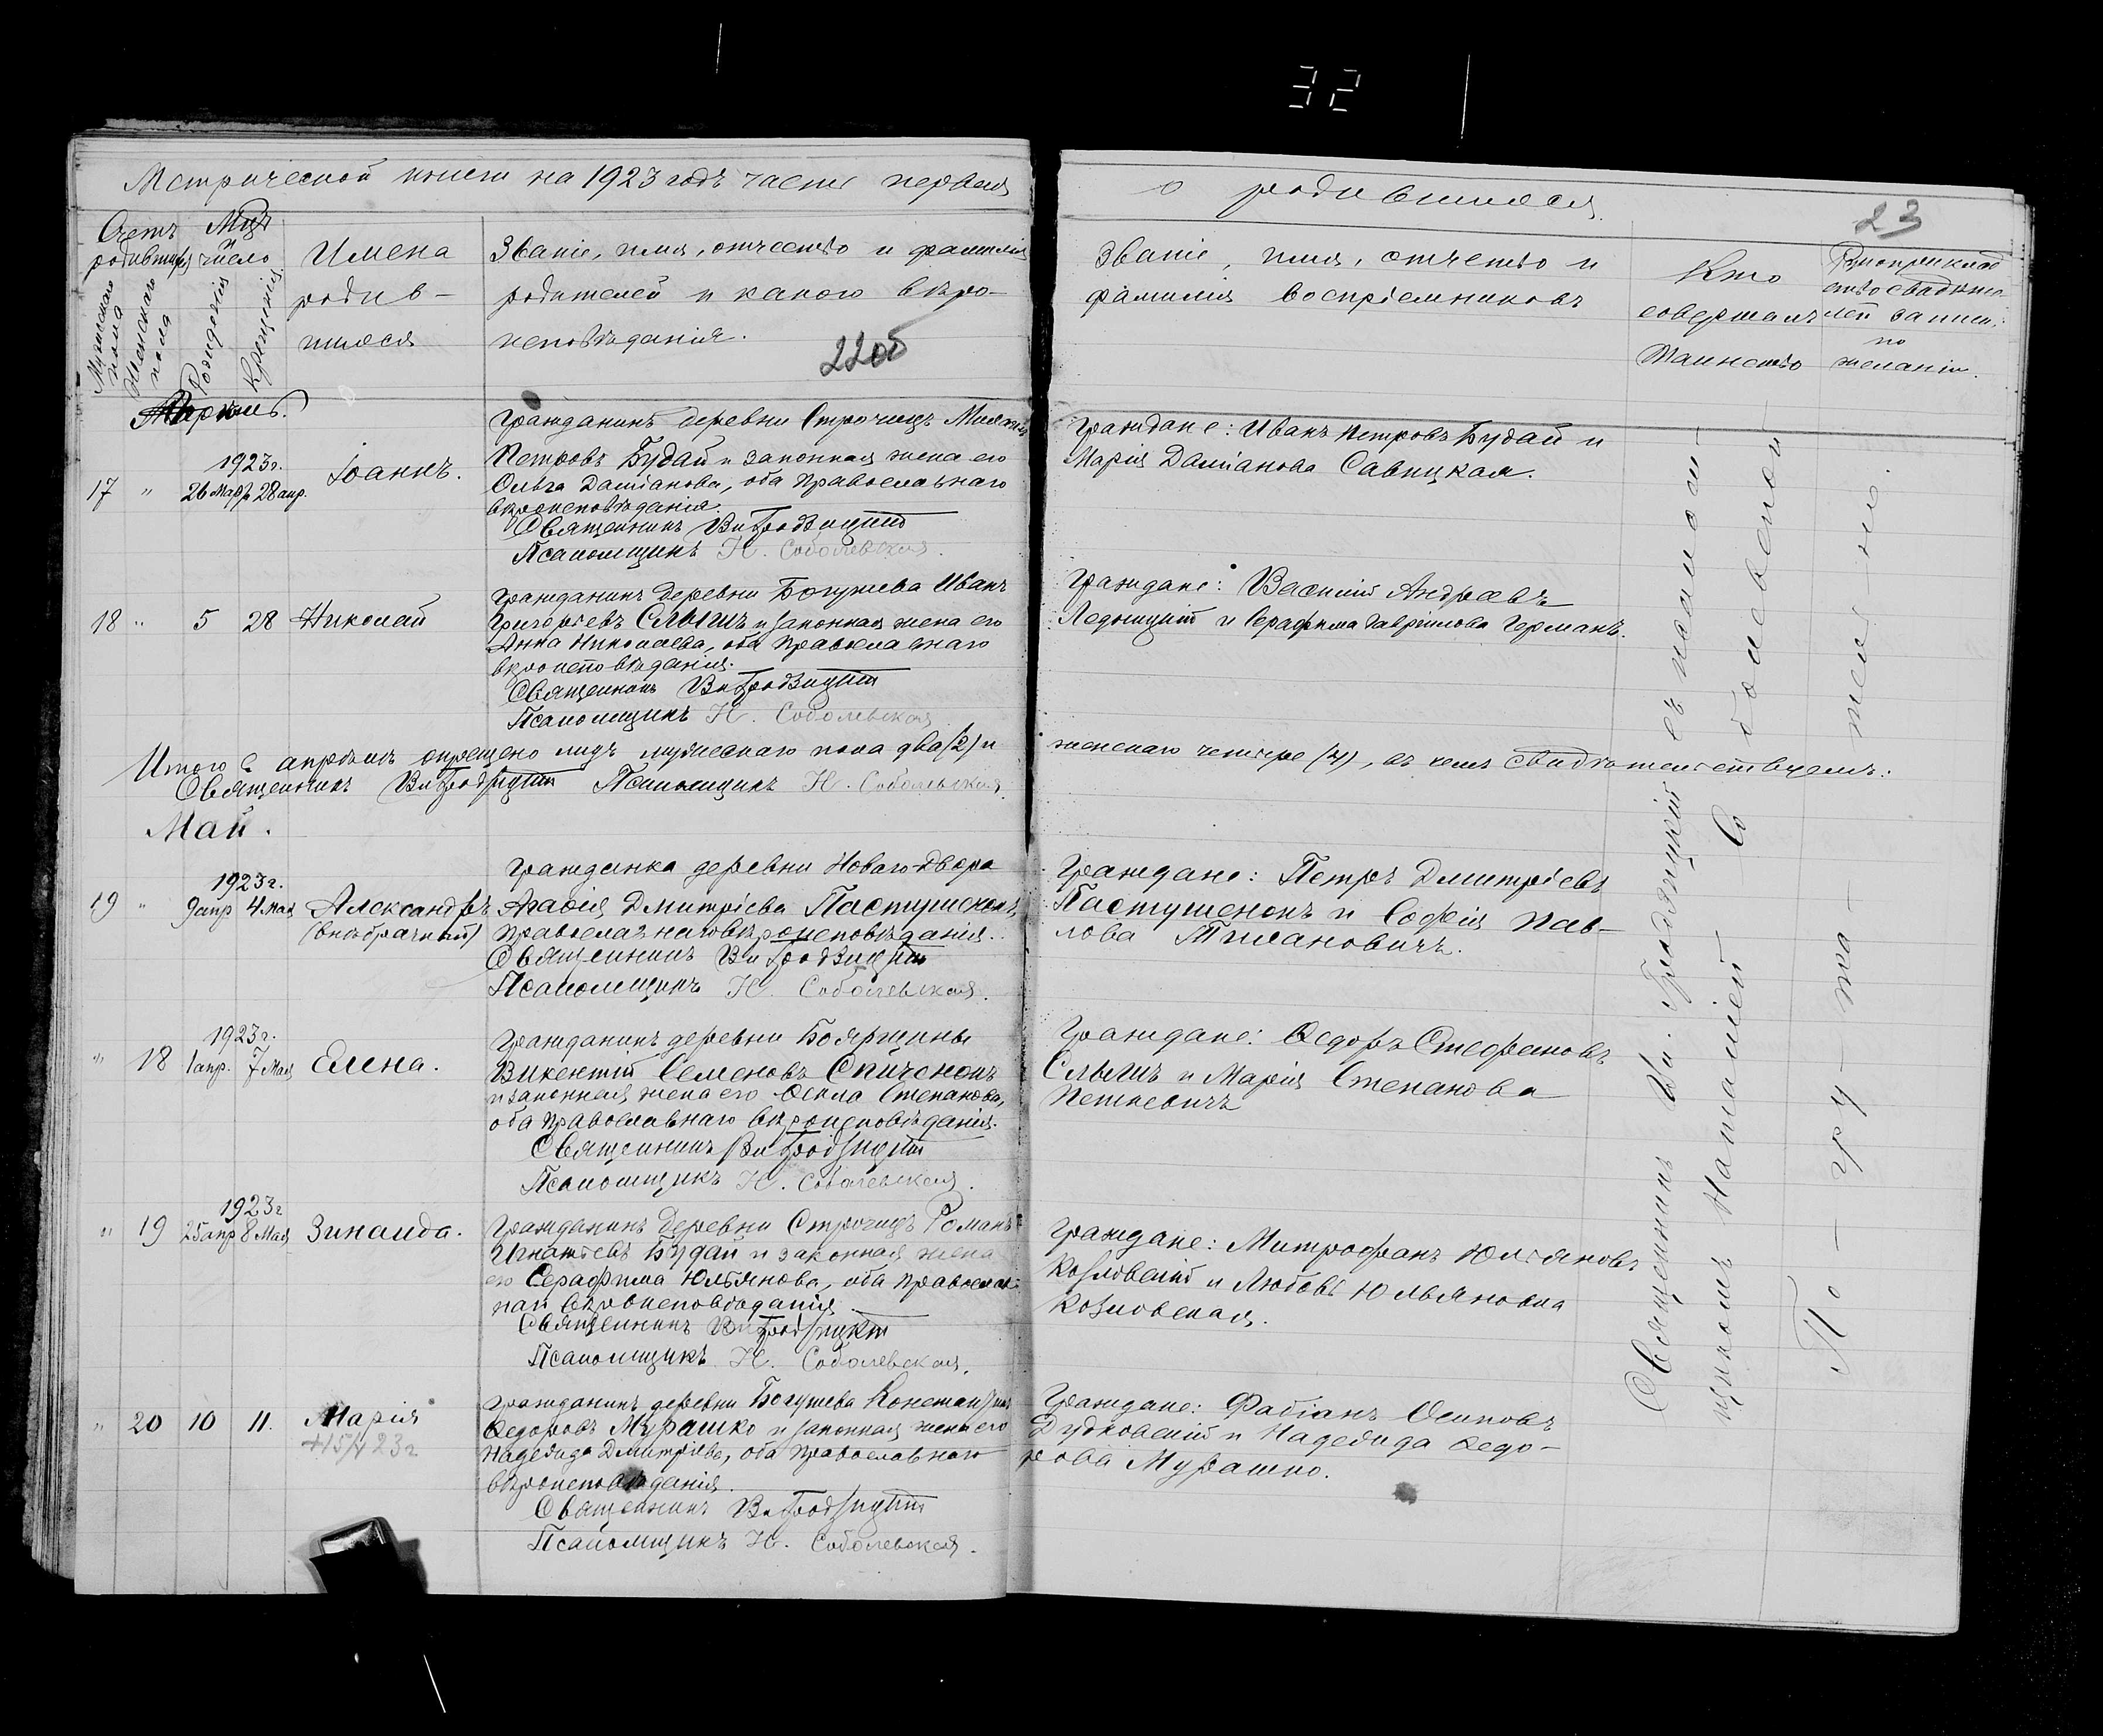 32
Метрической книги на 1923 годъ часть первая
о родившихся.
23
Счетъ родившихся
Мужескаго пола
Женскаго пола
Мѣц. и число
Рожденія
Крещенія
Имена
родив-
шихся
Званіе, имя, отчество и фамилія
родителей и какого вѣро-
исповѣданія.
22об
Званіе, имя, отчество и
фамилія воспріемниковъ
Кто
совершалъ
таинство
Рукоприклад
ство свидѣте
лей запис.
по
желанію.
Апрѣль.
Гражданинъ деревни Строчицъ
1923г.
17 " 26 Мар. 28 апр.
Іоаннъ.
Петровъ Будай и законная жена его
Ольга Даміанова, оба православнаго
вѣроисповѣданія.
Священникъ
Псаломщикъ Н. Соболевская.
Граждане: Иванъ Петровъ Будай и
Марія Даміанова Савицкая.
Гражданинъ деревни Богушева Иванъ
18 " 5 28 Николай
Григорьевъ Слышъ и законная жена его
Анна Николаева, оба православнаго
вѣроисповѣданія.
Священникъ
Псаломщикъ Н. Соболевская
Граждане: Василій Андреевъ
и Серафима Гавріилова Германъ.
Итого въ апрѣлѣ окрещено лицъ мужескаго пола два (2) и
женскаго четыре (4), въ чемъ свидѣтельствуемъ:
Священникъ Псаломщикъ Н. Соболевская.
Май.
Гражданка деревни Новаго-Двора
1923г.
19 " 9 апр 4 Мая Александръ
(внѣбрачный)
Агафія Дмитріева Пастушенокъ,
православнаго вѣроисповѣданія.
Священникъ
Псаломщикъ Н. Соболевская.
Граждане: Петръ Дмитріевъ
Пастушенокъ и Софія Пав-
лова Тимановичъ.
1923г.
" 18 1 апр. 7 Мая Елена.
Гражданинъ деревни Боярщины
Викентій Семеновъ Спичонокъ
и законная жена его Ѳекла Степанова,
оба православнаго вѣроисповѣданія.
Священникъ
Псаломщикъ Н. Соболевская.
Граждане: Ѳедоръ Стефановъ
Слышъ и Марія Степанова
Петкевичъ
1923г
" 19 25 апр 8 Мая Зинаида.
Гражданинъ деревни Строчицъ Романъ
Игнатьевъ Будай и законная жена
его Серафима Юльянова, оба православ-
наго вѣроисповѣданія
Священникъ
Псаломщикъ Н. Соболевская.
Граждане: Митрофанъ Юльяновъ
Козловскій и Любовь Юльяновна
Козловская.
" 20 10 11. Марія
+15/V 23г
Гражданинъ деревни Богушева Константинъ
Ѳедоровъ Мурашко и законная жена его
Надежда Дмитріева, оба православнаго
вѣроисповѣданія.
Священникъ
Псаломщикъ Н. Соболевская.
Граждане: Фабіанъ Осиповъ
Дудковскій и Надежда Ѳедо-
рова Мурашко.
Священникъ съ псалом-
щикомъ Наталіей Соболевской